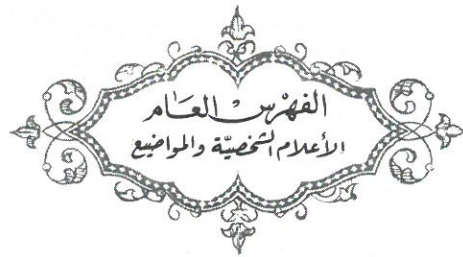 الفهرس العام
الأعلام الشخصيّة والمواضيع